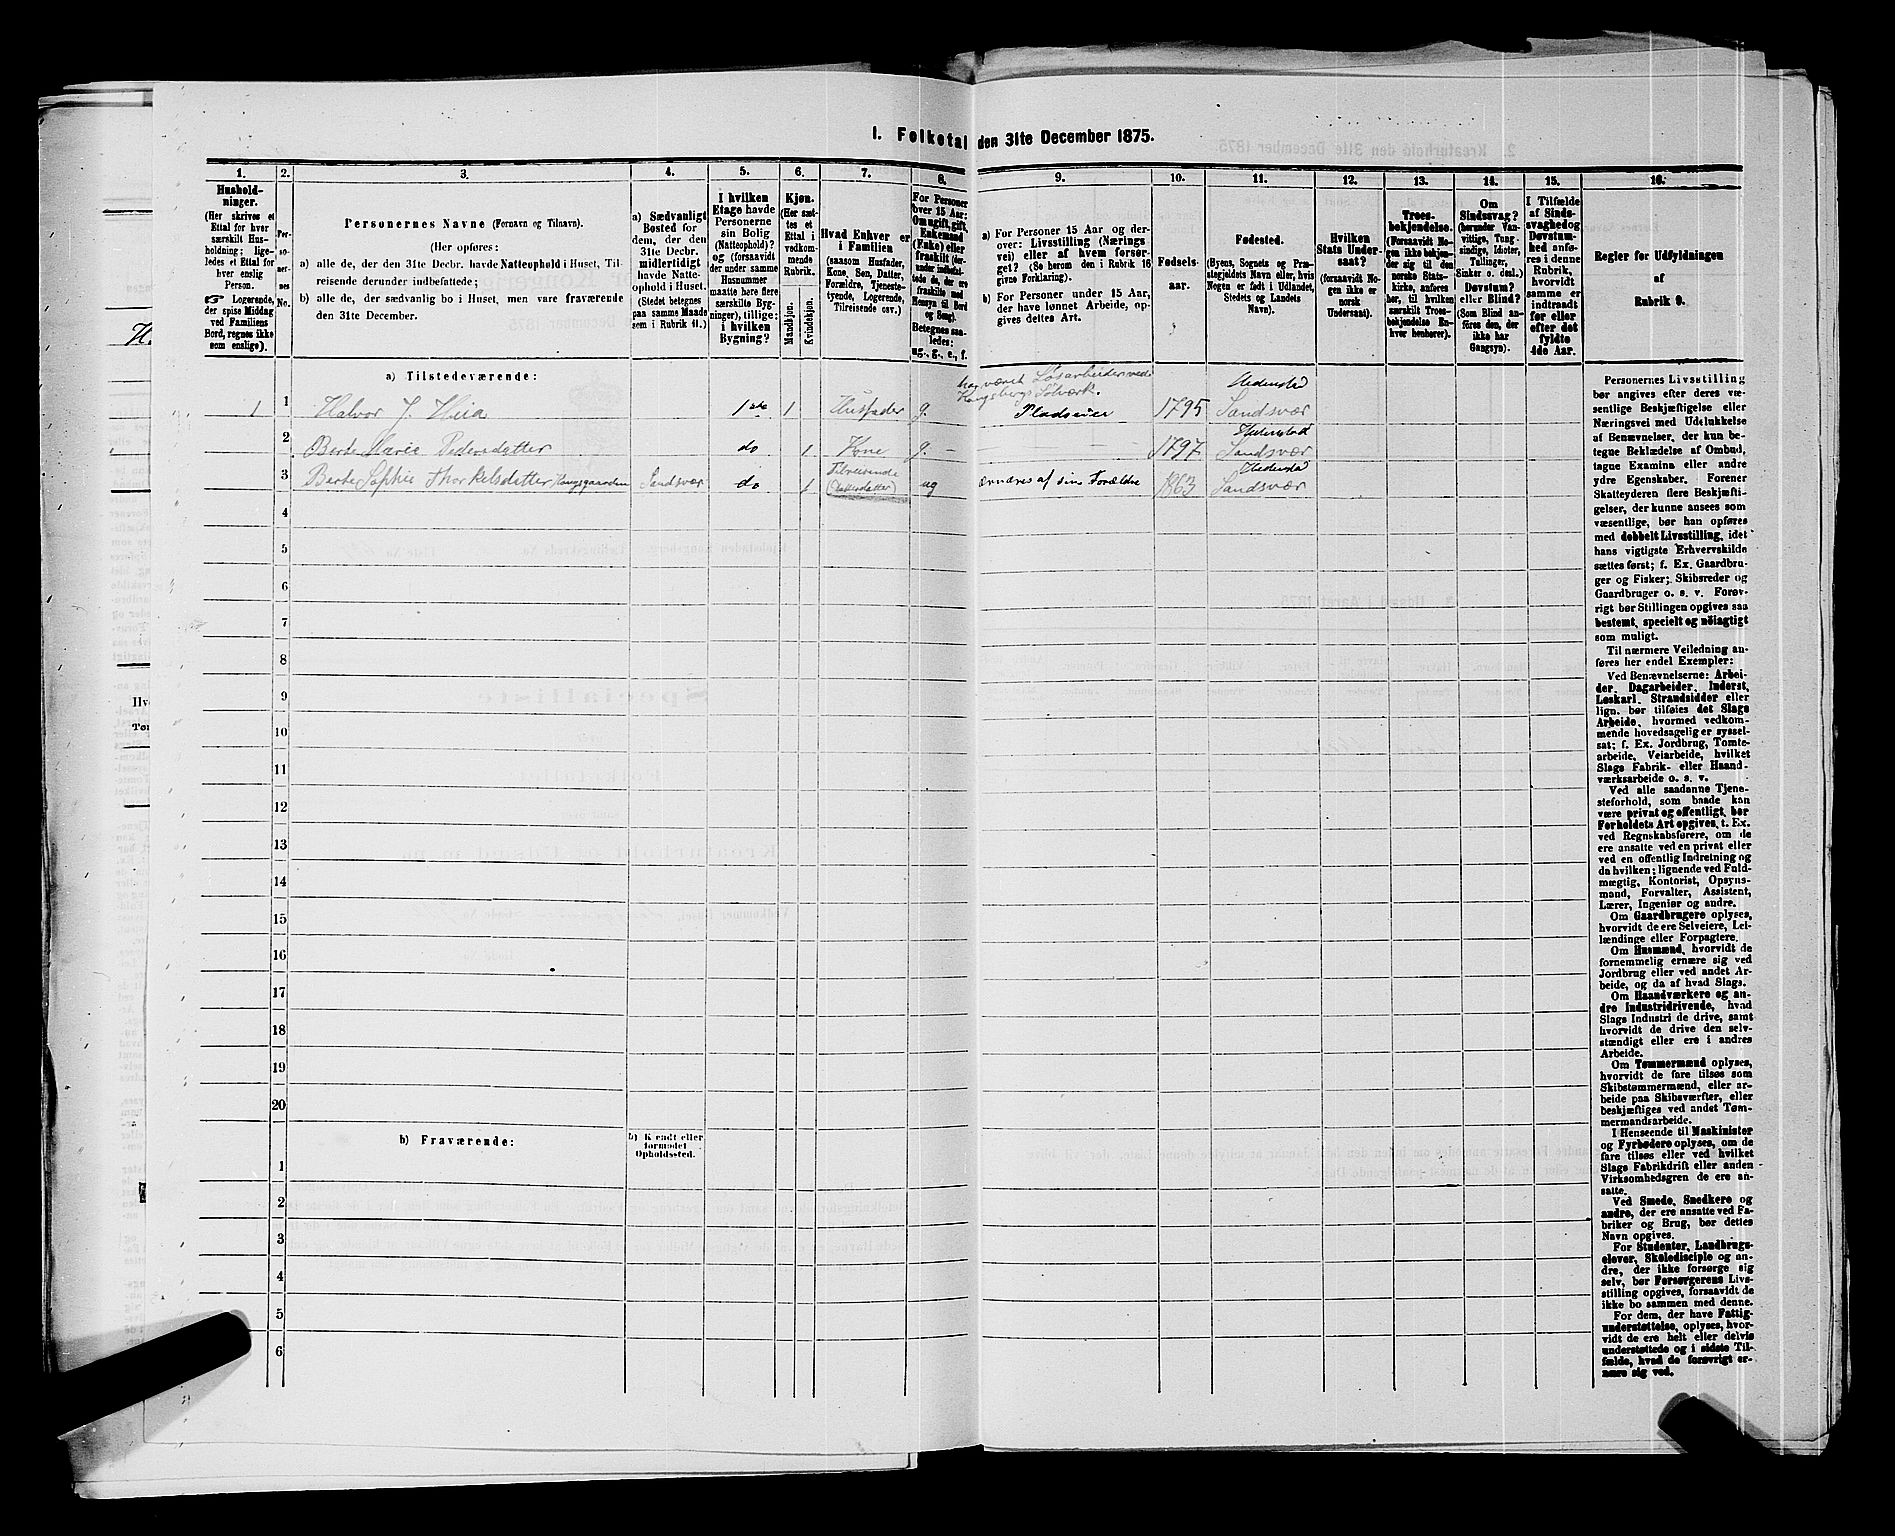 1. Folketal den 31te December 1875.
1.
Hushold-
ninger.
(Her skrives et
Ettal for hver
særskilt Hus-
holdning; lige-
ledes et Ettal for
hver enslig
Person.
☞ Logerende,
der spise Middag
ved Familiens
Bord, regnes ikke
som enslige).
2.
Per-
so-
ner-
nes
No.
3.
Personernes Navne (Fornavn og Tilnavn).
(Her opføres:
a) alle de, der den 31te Decbr. havde Natteophold i Huset, Til-
reisende derunder indbefattede;
b) alle de, der sædvanlig bo i Huset, men vare fraværende
den 31te December.
4.
a) Sædvanligt
Bosted for
dem, der den
31te Decbr.
midlertidigt
havde Natte-
ophold i Huset.
(Stedet betegnes
paa samme Maade
som i Rubrik 11.)
5.
I hvilken
Etage havde
Personerne
sin Bolig
(Natteophold)?
og (forsaavidt
der under samme
Husnummer
maatte høre flere
særskilte Byg-
ninger), tillige:
i hvilken
Bygning?
6.
Kjøn.
(Her sæt-
tes et
Ettal i
vedkom-
mende
Rubrik.
Mandkjøn.
Kvindekjøn.
7.
Hvad Enhver er
i Familien
(saasom Husfader,
Kone, Søn, Datter,
Forældre, Tjeneste-
tyende, Logerende,
Tilreisende osv.)
8.
For Personer
over 15 Aar:
Om ugift, gift,
Enkemand
(Enke) eller
fraskilt (der-
under indbefat-
tede de, der ere
fraskilte med
Hensyn til Bord
og Seng).
Betegnes saa-
ledes:
ug., g., e., f.
9.
a) For Personer 15 Aar og der-
over: Livsstilling (Nærings
vei) eller af hvem forsør-
get? (Se herom den i Rubrik 16
givne Forklaring).
b) For Personer under 15 Aar,
der have lønnet Arbeide, op-
gives dettes Art.
10.
Fødsels-
aar.
11.
Fødested.
(Byens, Sognets og Præ-
stegjeldets Navn eller, hvis
Nogen er født i Udlandet,
Stedets og Landets
Navn).
12.
Hvilken
Stats Under-
saat?
(forsaavidt No-
gen ikke er
norsk
Undersaat).
13.
Troes-
bekjendelse.
(Forsaavidt No-
gen ikke bekjen-
der sig til den
norske Stats-
kirke, anføres
her, til hvilken
særskilt Troes-
bekjendelse En-
hver henhører).
14.
Om
Sindssvag?
(herunder Van-
vittige, Tung-
sindige, Idioter,
Tullinger,
Sinker o. desl.)
Døvstum?
eller Blind?
(Som Blind an-
føres den, der
ikke har
Gangsyn).
15.
I Tilfælde
af Sinds-
svaghed og
Døvstum-
hed anfø-
res i denne
Rubrik,
hvorvidt
samme er
indtraadt
før eller
efter det
fyldte
4de Aar.
16.
Regler for Udfyldningen
af
Rubrik 9.
a) Tilstedeværende:
har været Løsarbeider ved
Kongsbergs Sølværk. Hedenstad
1 1 Halvor J. Heia 1ste 1 Husfader g. Pladseier 1795 Sandsvær
Hedenstad
2 Berte Marie Pedersdatter do 1 Kone g. - - - 1797 Sandsvær
Tilreisende Hedenstad
3 Berte Sophie Thorkelsdatter Kongsgaarden Sandsvær do 1 (Datterdatter) ug ernæres af sine Forældre 1863 Sandsvær
4
5
6
7
8
9
10
11
12
13
14
15
16
17
18
19
20
b) Fraværende:
b) Kjendt eller
formodet
Opholdssted.
1
2
3
4
5
6
Personernes Livsstilling
bør angives efter deres væ-
sentlige Beskjæftigelse eller
Næringsvei med Udelukkelse
af Benævnelser, der kun be-
tegne Beklædelse af Ombud,
tagne Examina eller andre
ydre Egenskaber. Forener
Skatteyderen flere Beskjæfti-
gelser, der kunne ansees som
væsentlige, bør han opføres
med dobbelt Livsstilling, idet
hans vigtigste Erhvervskilde
sættes først; f. Ex. Gaardbru-
ger og Fisker; Skibsreder og
Gaardbruger o. s. v. Forøv-
rigt bør Stillingen opgives saa
bestemt, specielt og nöiagtigt
som muligt.
Til nærmere Veiledning an-
føres her endel Exempler:
Ved Benævnelserne: Arbei-
der, Dagarbeider, Inderst,
Løskarl, Strandsidder eller
lign. bør tilføies det Slags
Arbeide, hvormed vedkom-
mende hovedsagelig er syssel-
sat; f. Ex. Jordbrug, Tomte-
arbeide, Veiarbeide, hvilket
Slags Fabrik- eller Haand-
værksarbeide o. s. v.
Ved alle saadanne Tjene-
steforhold, som baade kan
være privat og offentligt, bør
Forholdets Art opgives, t. Ex.
ved Regnskabsførere, om de
ere ansatte ved en privat eller
ved en offentlig Indretning og
da hvilken; lignende ved Fuld-
mægtig, Kontorist, Opsyns-
mand, Forvalter, Assistent,
Lærer, Ingeniør og andre.
Om Gaardbrugere oplyses,
hvorvidt de ere Selveiere, Lei-
lændinge eller Forpagtere.
Om Husmænd, hvorvidt de
fornemmelig ernære sig ved
Jordbrug eller ved andet Ar-
beide, og da af hvad Slags.
Om Haandværkere og an-
dre Industridrivende, hvad
Slags Industri de drive, samt
hvorvidt de drive den selv-
stændigt eller ere i andres
Arbeide.
Om Tømmermænd oplyses,
hvorvidt de fare tilsøs som
Skibstømmermænd, eller ar-
beide paa Skibsværfter, eller
beskjæftiges ved andet Tøm-
mermandsarbeide.
I Henseende til Maskinister
og Fyrbødere oplyses, om de
fare tilsøs eller ved hvilket
Slags Fabrikdrift eller anden
Virksomhedsgren de ere an-
satte.
Ved Smede, Snedkere og
andre, der ere ansatte ved Fa-
briker og Brug, bør dettes
Navn opgives.
For Studenter, Landbrugs-
elever, Skoledisciple og an-
dre, der ikke forsørge sig
selv, bør Forsørgerens Livs-
stilling opgives, forsaavidt de
ikke bo sammen med denne.
For dem, der have Fattig-
understøttelse, oplyses, hvor-
vidt de ere helt eller delvis
understøttede og i sidste Til-
fælde, hvad de forøvrigt er-
nære sig ved.